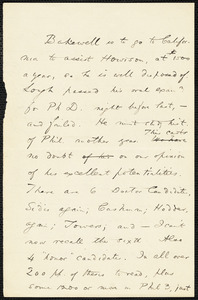 Bakewell is to go to Califor-
nia to assist Howison, at 1500
a year, so he is well disposed of
Lough passed his oral exam
for Ph D. night before last, —
and failed. He must study hist.
of Phil. another year. This casts
no doubt on our opinion
of his excellent potentialities.
There are 6 Doctor Candidates,
Sidis again; Cushman; Hodder,
again; Towers; and — I can't
now recall the sixth. Also
4 "honor" candidates. In all over
200 pp. of thesis to read, plus
some more in Phil 3, just